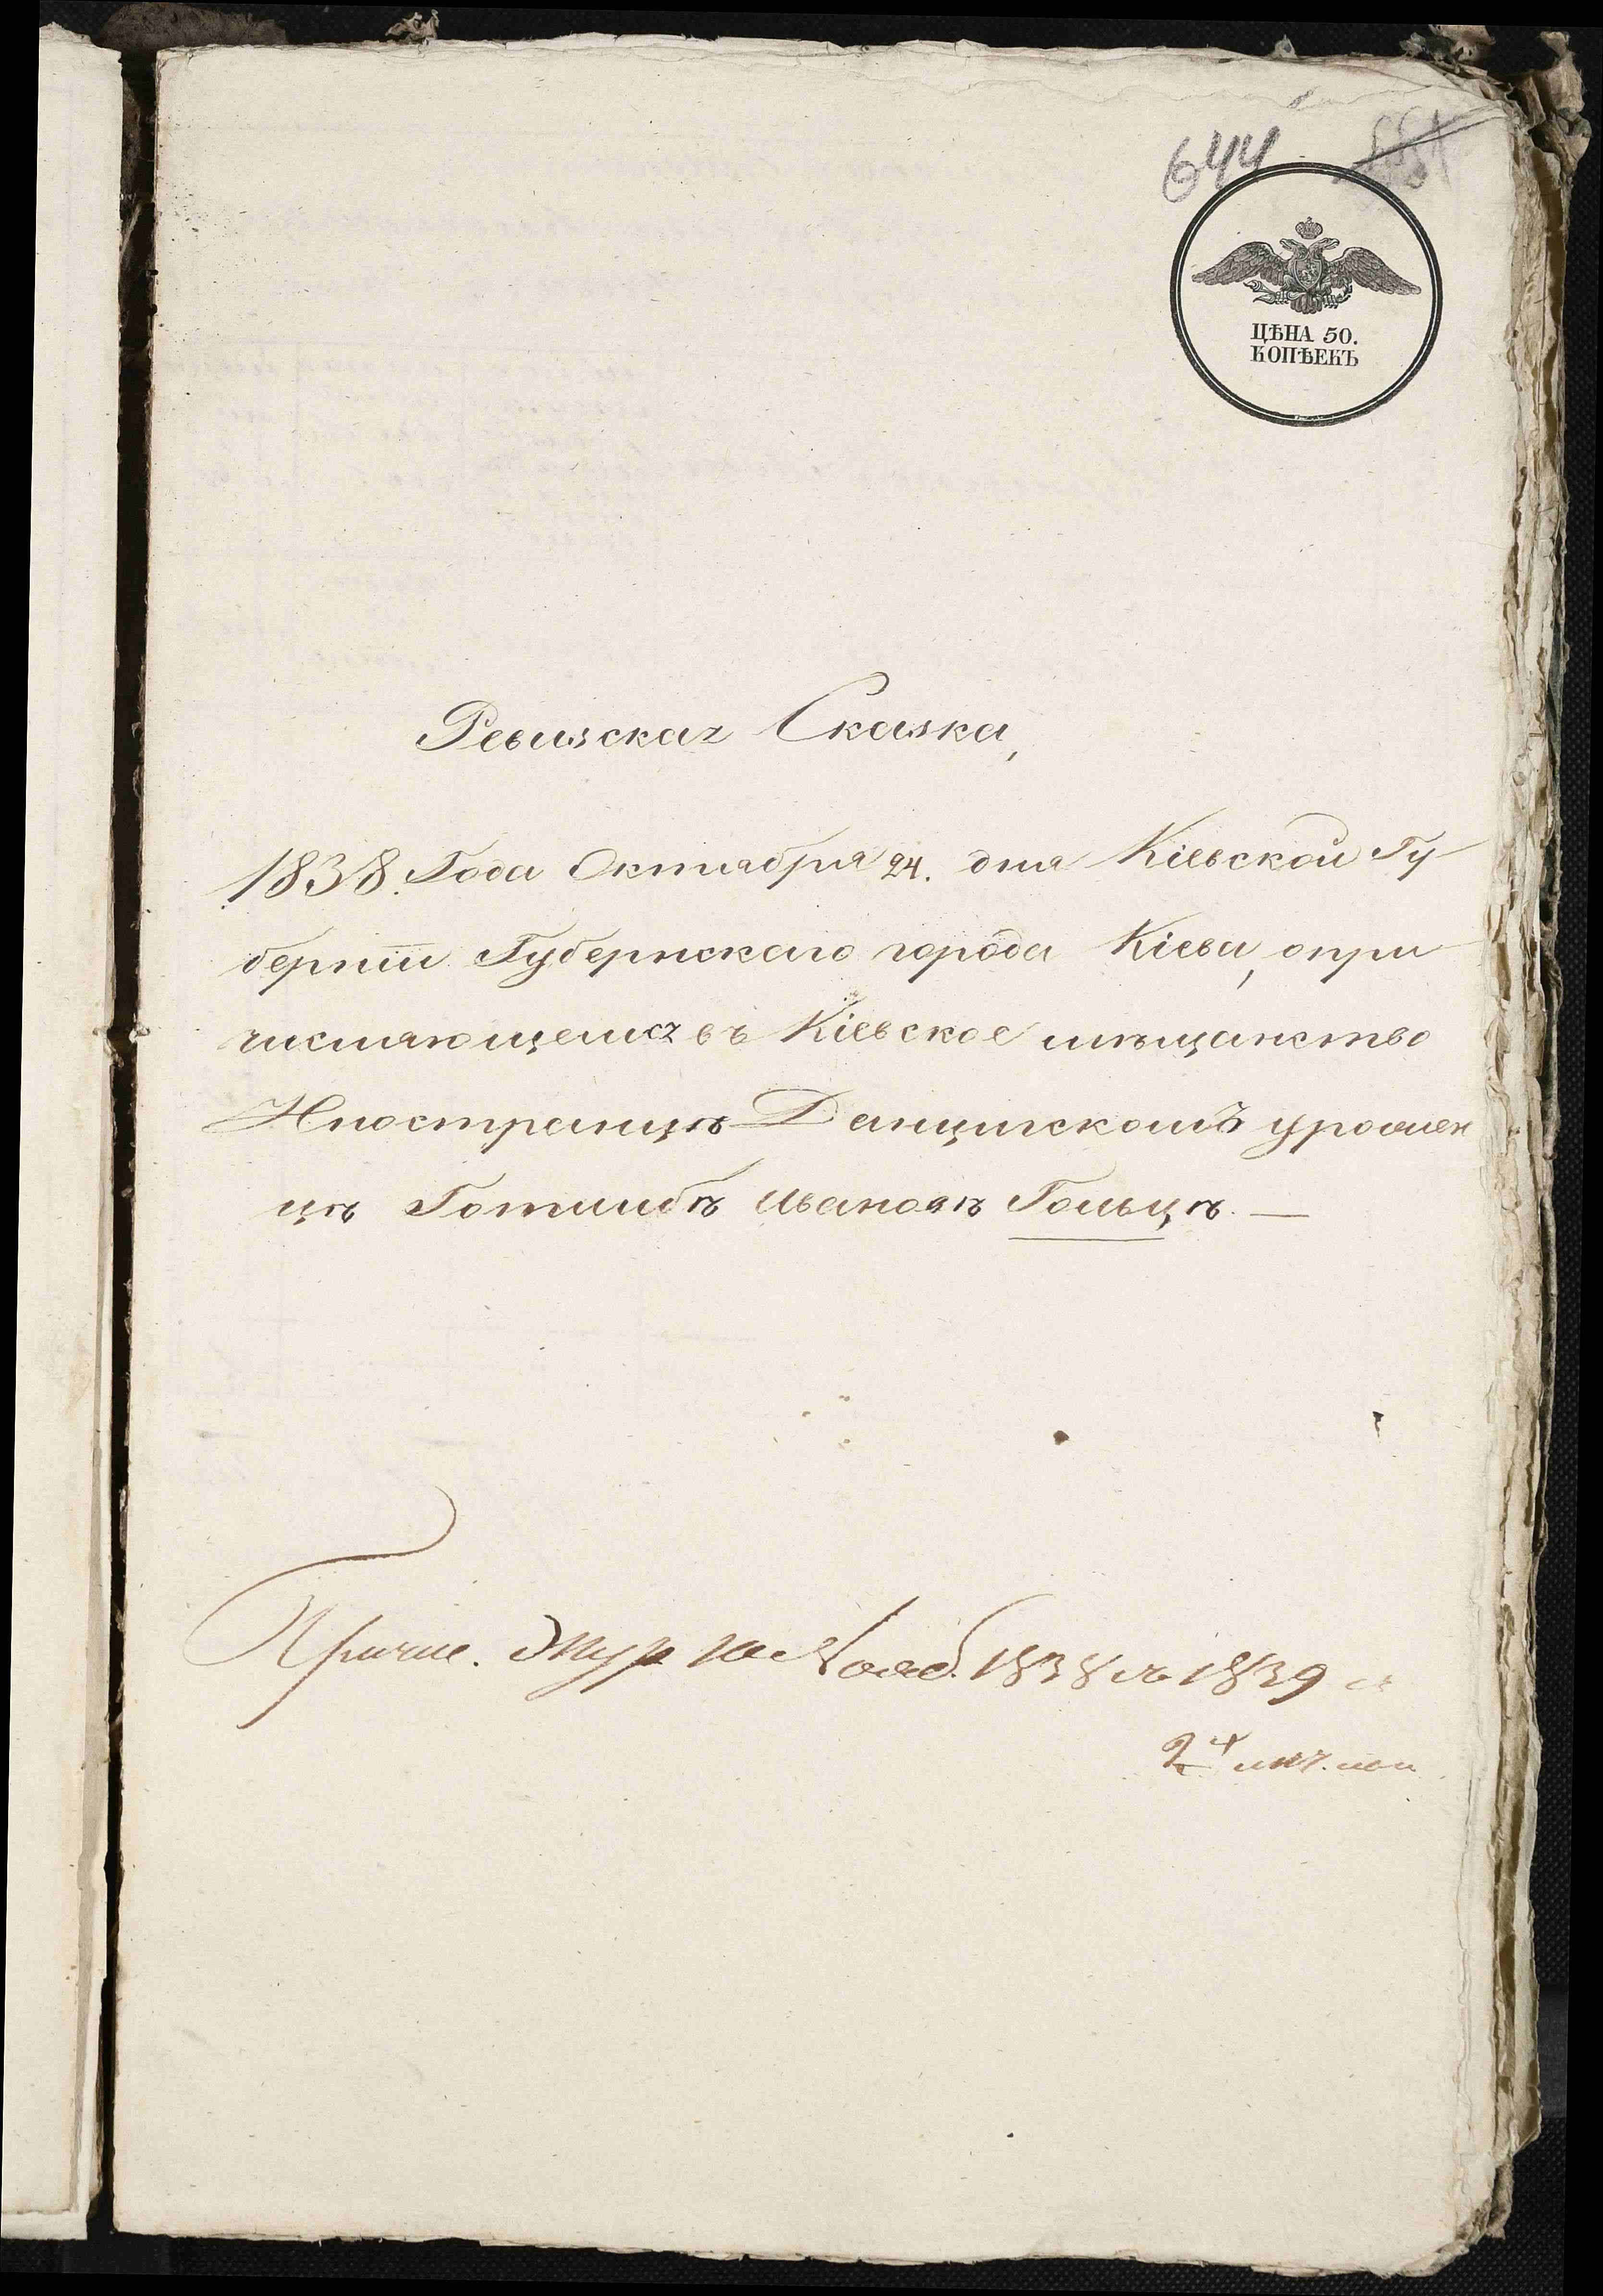 644
ЦѢНА 50.
КОПѢЕКЪ
Ревизская Сказка,
1838. Года Октября 24. дня Кіевской Гу
берніи Губернскаго города Кіева, опри
числяющемся въ Кіевское мѣщанство
Иностранцѣ Данцигскомъ уромен
цѣ Готлибѣ Ивановѣ Гольцѣ. —
Причис. Журн. 10 Нояб. 1838 съ 1839
2й